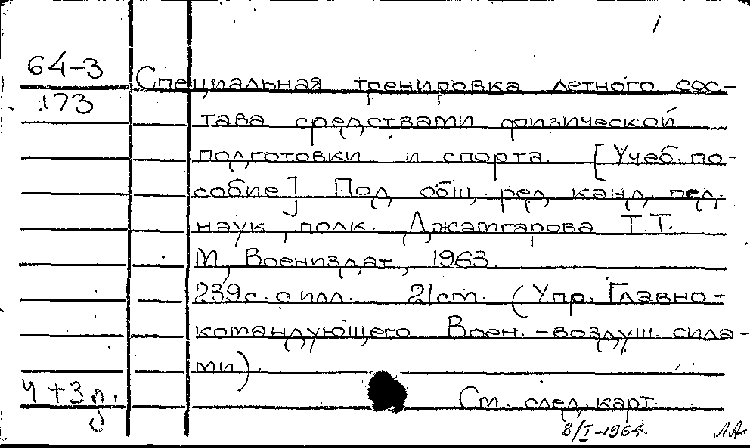 1
64-3
173
Специальная тренировка летного сос-
тава средствами физической
подготовки и спорта. [Учеб. по-
собие]. Под общ. ред. канд. пед.
наук, полк. Джамгарова Т.Т.
М., Воениздат, 1963.
239с. с илл. 21см. (Упр. Главно-
командующего Воен.-воздуш. сила-
ми).
См. след. карт.
8/I-1964.